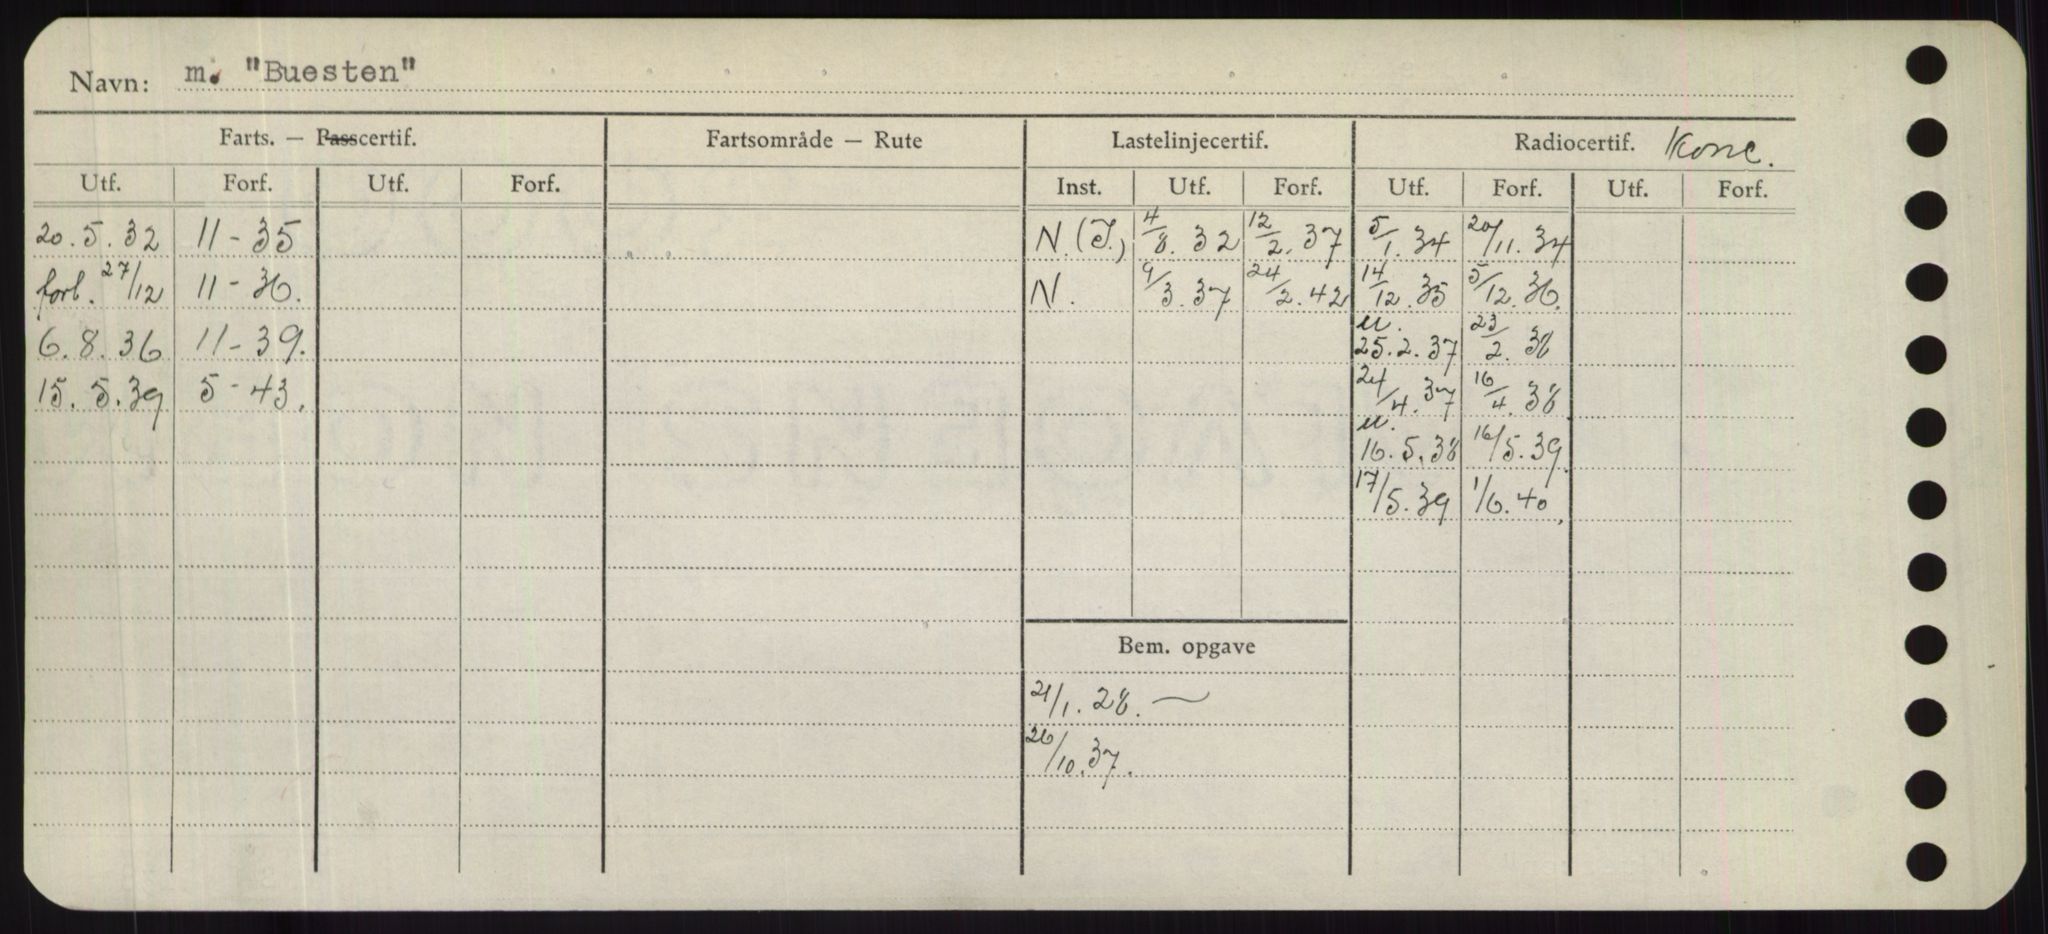 Navn: m. "Buesten"
Farts. — Passcertif. Fartsområde — Rute Lastelinjecertif. Radiocertif. Konc.
Utf. Forf. Utf. Forf. Inst. Utf. Forf. Utf. Forf. Utf. Forf.
20.5.32 11-35 N.(I.) 4/8.32 12/2.37 5/1.34 20/11.34
forl. 27/12 11-36. N. 9/3.37 24/2.42 14/12.35 5/12.36.
6.8.36 11-39. u. 25.2.37 23/2.38
15.5.39 5-43. 24/4.37 16/4.38
u. 16.5.38 16/5.39
17/5.39 1/6.40.
Bem. opgave
21/1.28. —
26/10.37.